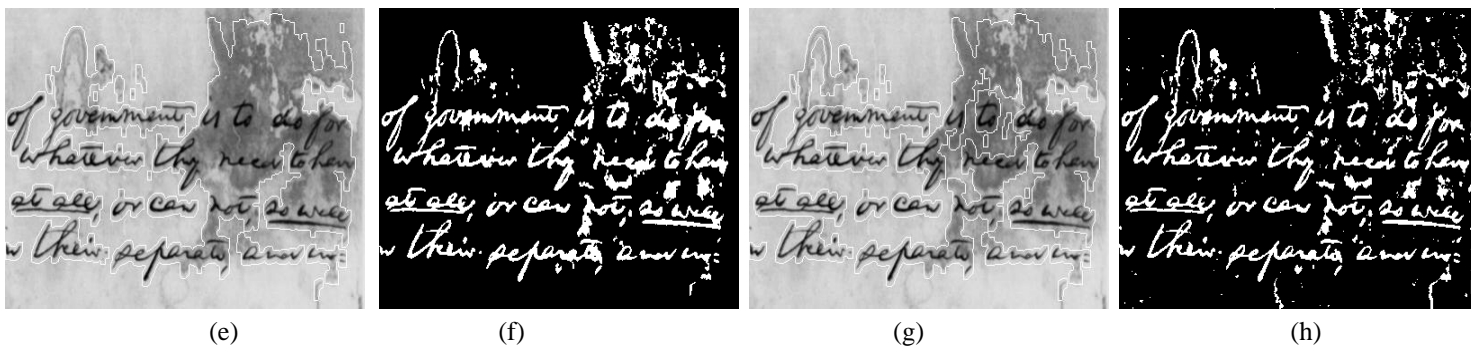 of government, is to do for
whatever they need to have
at all, or can not, so well
their separate, and in-
(e)
of government, is to do for
whatever they need to have
at all, or can not, so well
their separate, and in-
(f)
of government, is to do for
whatever they need to have
at all, or can not, so well
their separate, and in-
(g)
of government, is to do for
whatever they need to have
at all, or can not, so well
their separate, and in-
(h)